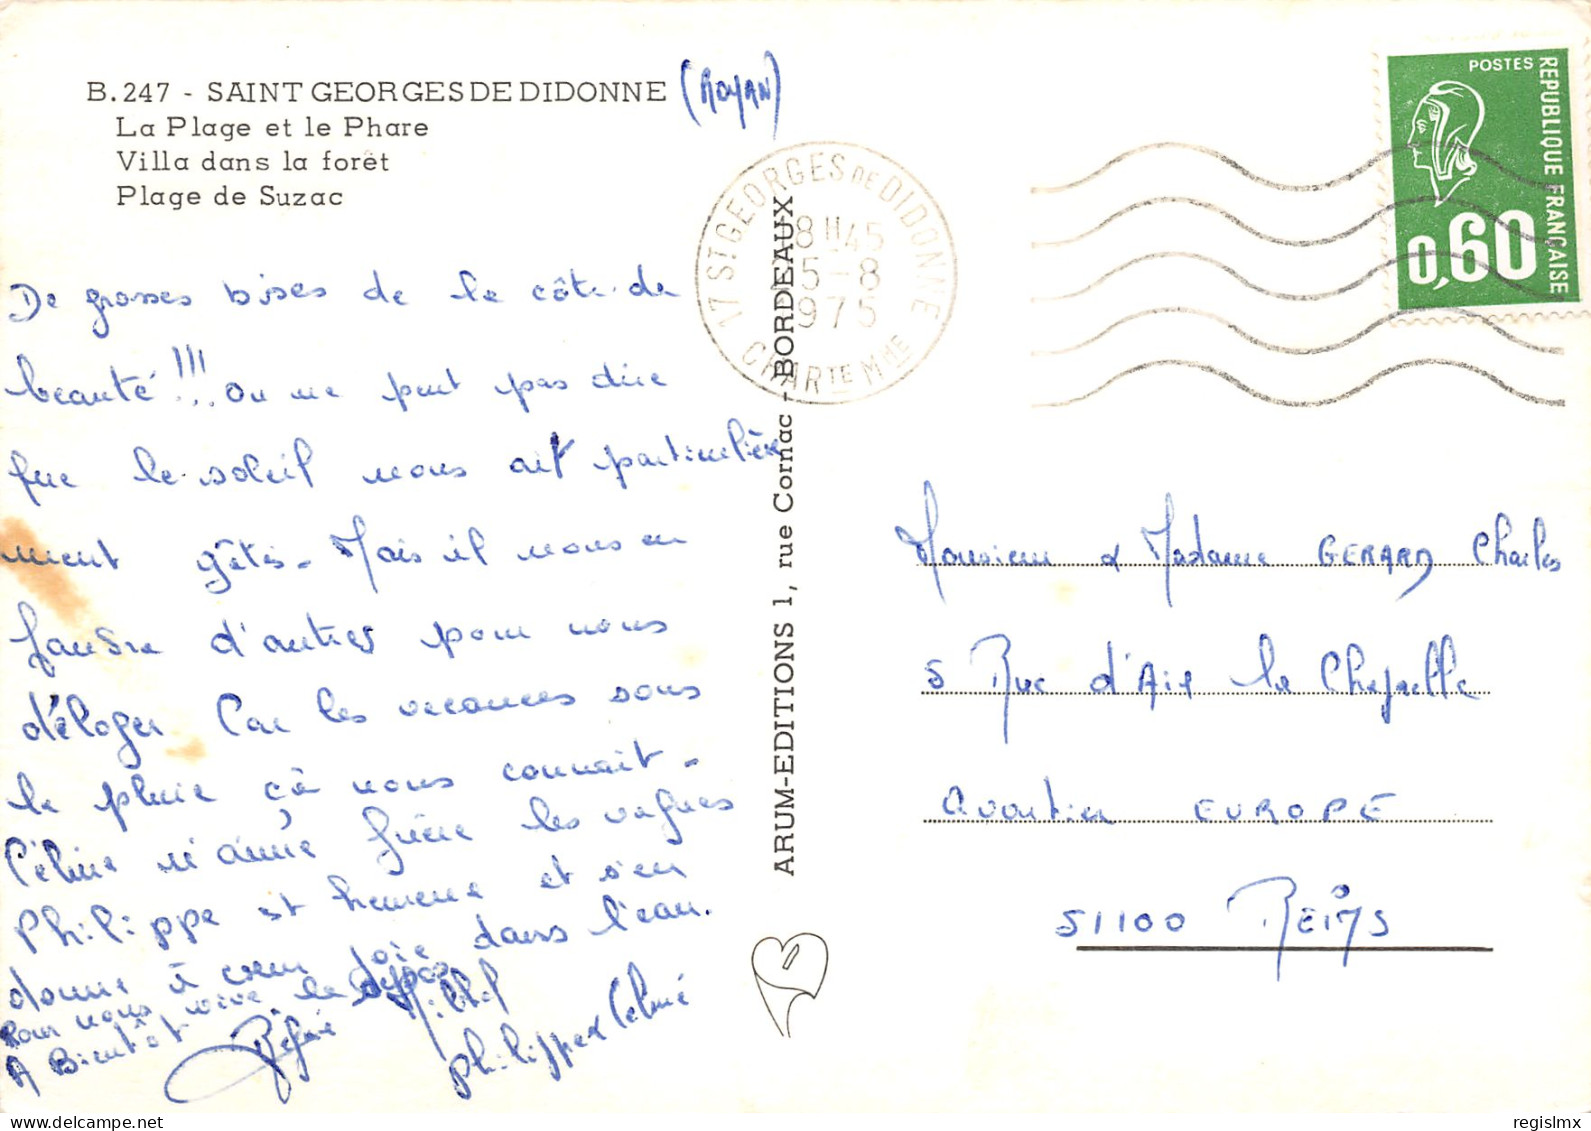 B.247 - SAINT GEORGES DE DIDONNE (ROYAN)
La Plage et le Phare
Villa dans la forêt
Plage de Suzac
De grosses bises de la côte de
beauté !!! On ne peut pas dire
que le soleil nous ait particulière
ment gâtés. Mais il nous en
faudra d'autres pour nous
déloger Car les vacances sous
la pluie çà nous connait.
Céline n'aime guère les vagues
Philippe est heureux et s'en
donne à coeur joie dans l'eau.
Pour nous vive le repos
A Bientôt
Régine Michel
Philippe & Céline
ARUM-EDITIONS 1, rue Cornac - BORDEAUX
17 ST GEORGES DE DIDONNE
18H45
5-8
1975
CHARTE MME
POSTES
REPUBLIQUE FRANÇAISE
0,60
Monsieur & Madame GERARD Charles
5 Rue d'Aix la Chapelle
Quartier EUROPE
51100 REIMS
regislmx